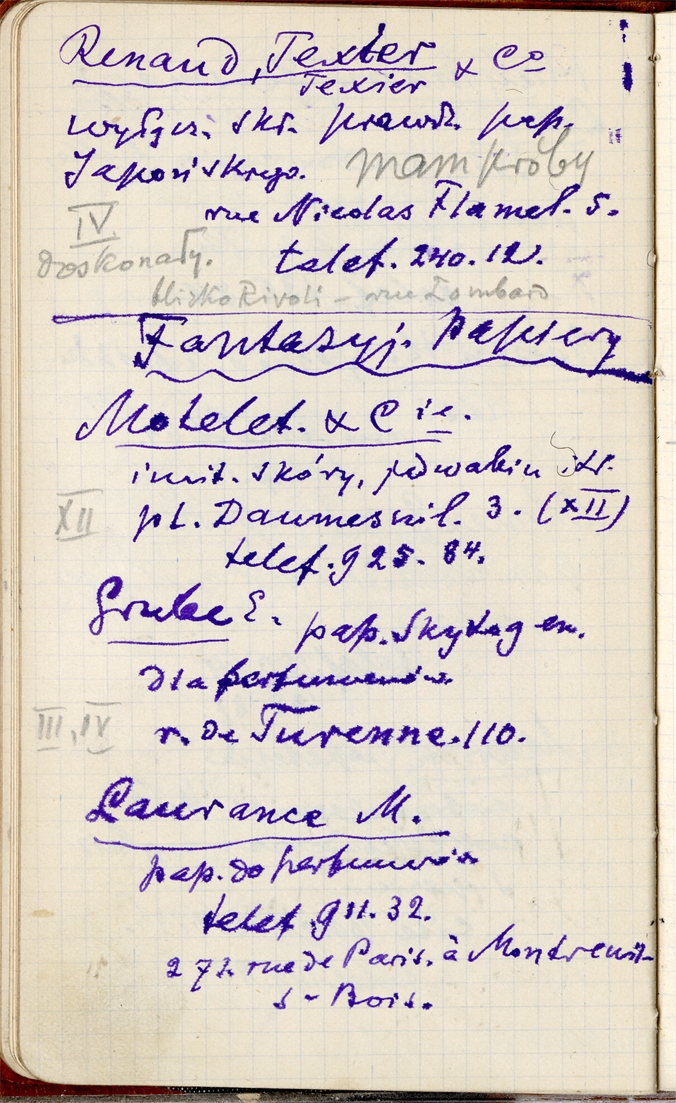 Renaud, Texter & Co
Texier
wyłącz. skł. prawdz. pap.
Japońskiego. mam próby
IV. rue Nicolas Flamel. 5.
doskonały. telef. 240.12.
blisko Rivoli – rue Lombard
Fantazyj. Papiery
Motelet. & Cie.
imit. skóry, jedwabiu itd.
XII pl. Daumesnil. 3. (XII)
telef. 925. 84.
Grube E. pap. Skytogen.
dla perfumerów
III, IV r. de Turenne. 110.
Laurance M.
pap. do perfumerów
telef. 911. 32.
272. rue de Paris. à Montreuil-
s-Bois.